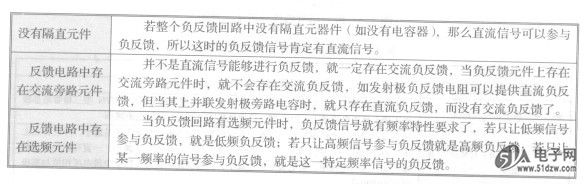 没有隔直元件
若整个负反馈回路中没有隔直元器件（如没有电容器），那么直流信号可以参与
负反馈，所以这时的负反馈信号肯定有直流信号。
反馈电路中存
在交流旁路元件
并不是直流信号能够进行负反馈，就一定存在交流负反馈，当负反馈元件上存在
交流旁路元件时，就不会存在交流负反馈，如发射极负反馈电阻可以提供直流负反
馈，但当其上并联发射极旁路电容时，就只存在直流负反馈，而没有交流负反馈了。
反馈电路中存
在选频元件
当负反馈回路有选频元件时，负反馈信号就有频率特性要求了，若只让低频信号
参与负反馈，就是低频负反馈；若只让高频信号参与负反馈就是高频负反馈，若只让
某一频率的信号参与负反馈，就是这一特定频率信号的负反馈。
51电子网
www.51dzw.com